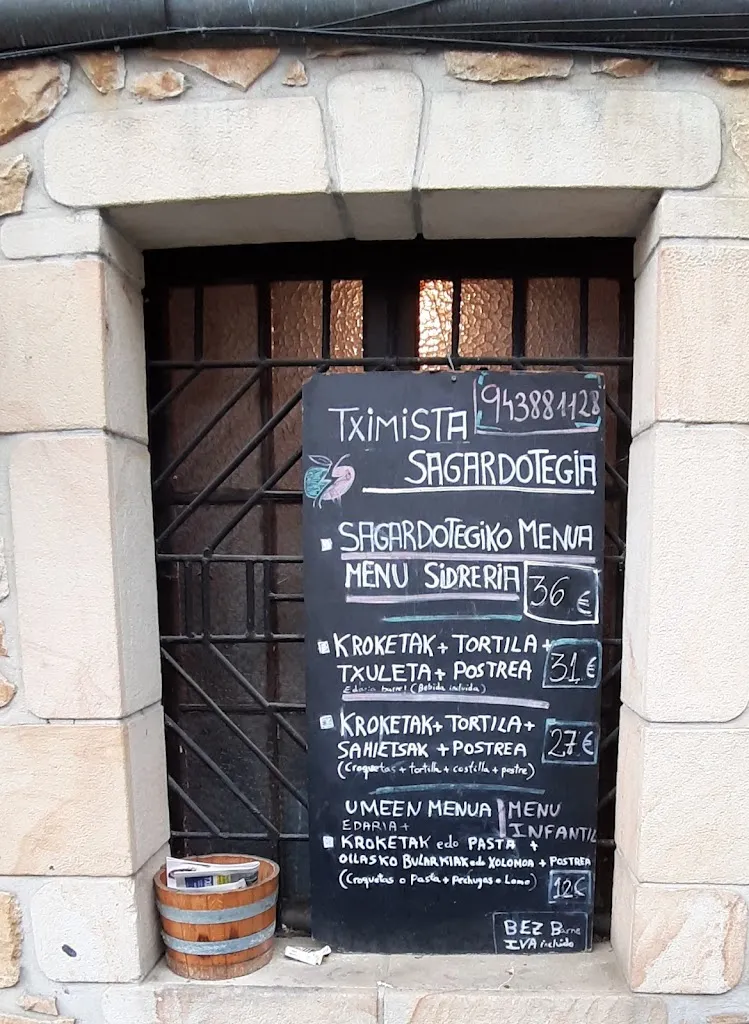 943881128
TXIMISTA
SAGARDOTEGIA
SAGARDOTEGIKO MENUA
MENU SIDRERIA 36 €
KROKETAK + TORTILA +
TXULETA + POSTREA 31 €
Edaria barne! (Bebida incluida)
KROKETAK + TORTILA +
SAHIETSAK + POSTREA 27 €
(Croquetas + tortilla + costilla + postre)
UMEEN MENUA | MENU INFANTIL
EDARIA +
KROKETAK edo PASTA +
OILASKO BULARKIAK edo XOLOMOA + POSTREA
(Croquetas o Pasta + Pechugas o Lomo) 12€
BEZ Barne
IVA incluido